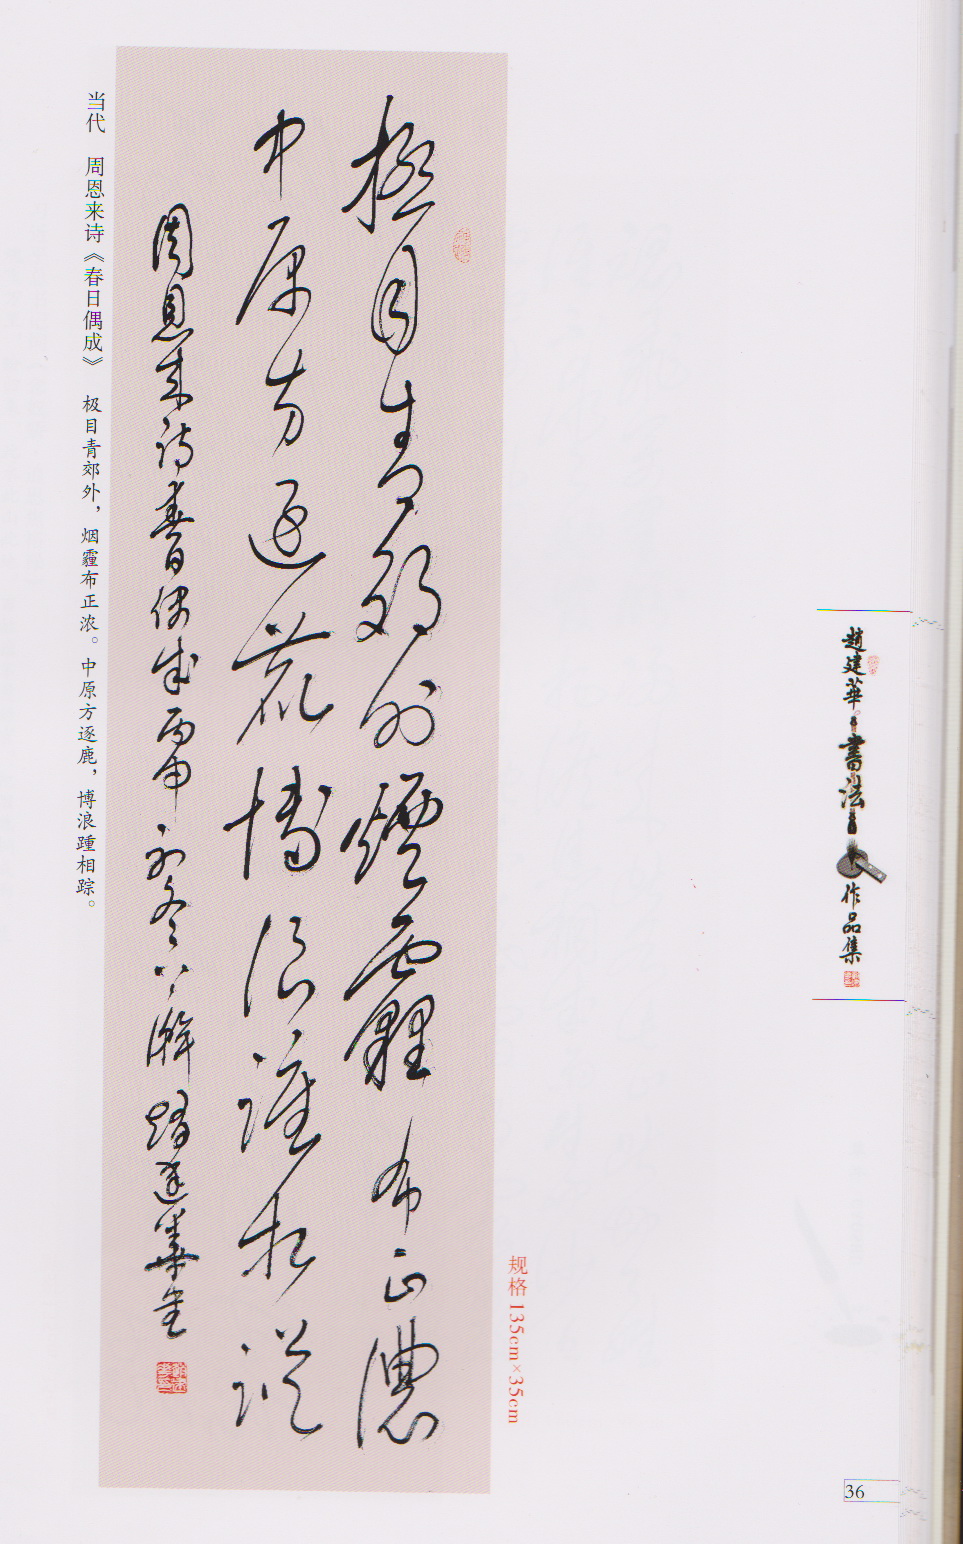 極目青郊外煙霾布正濃
中原方逐鹿博浪踵相踪
周恩来诗春日偶成丙申初冬八澥趙建華书
当代　周恩来诗《春日偶成》　极目青郊外，烟霾布正浓。中原方逐鹿，博浪踵相踪。
规格 135cm×35cm
趙建華書法作品集
36